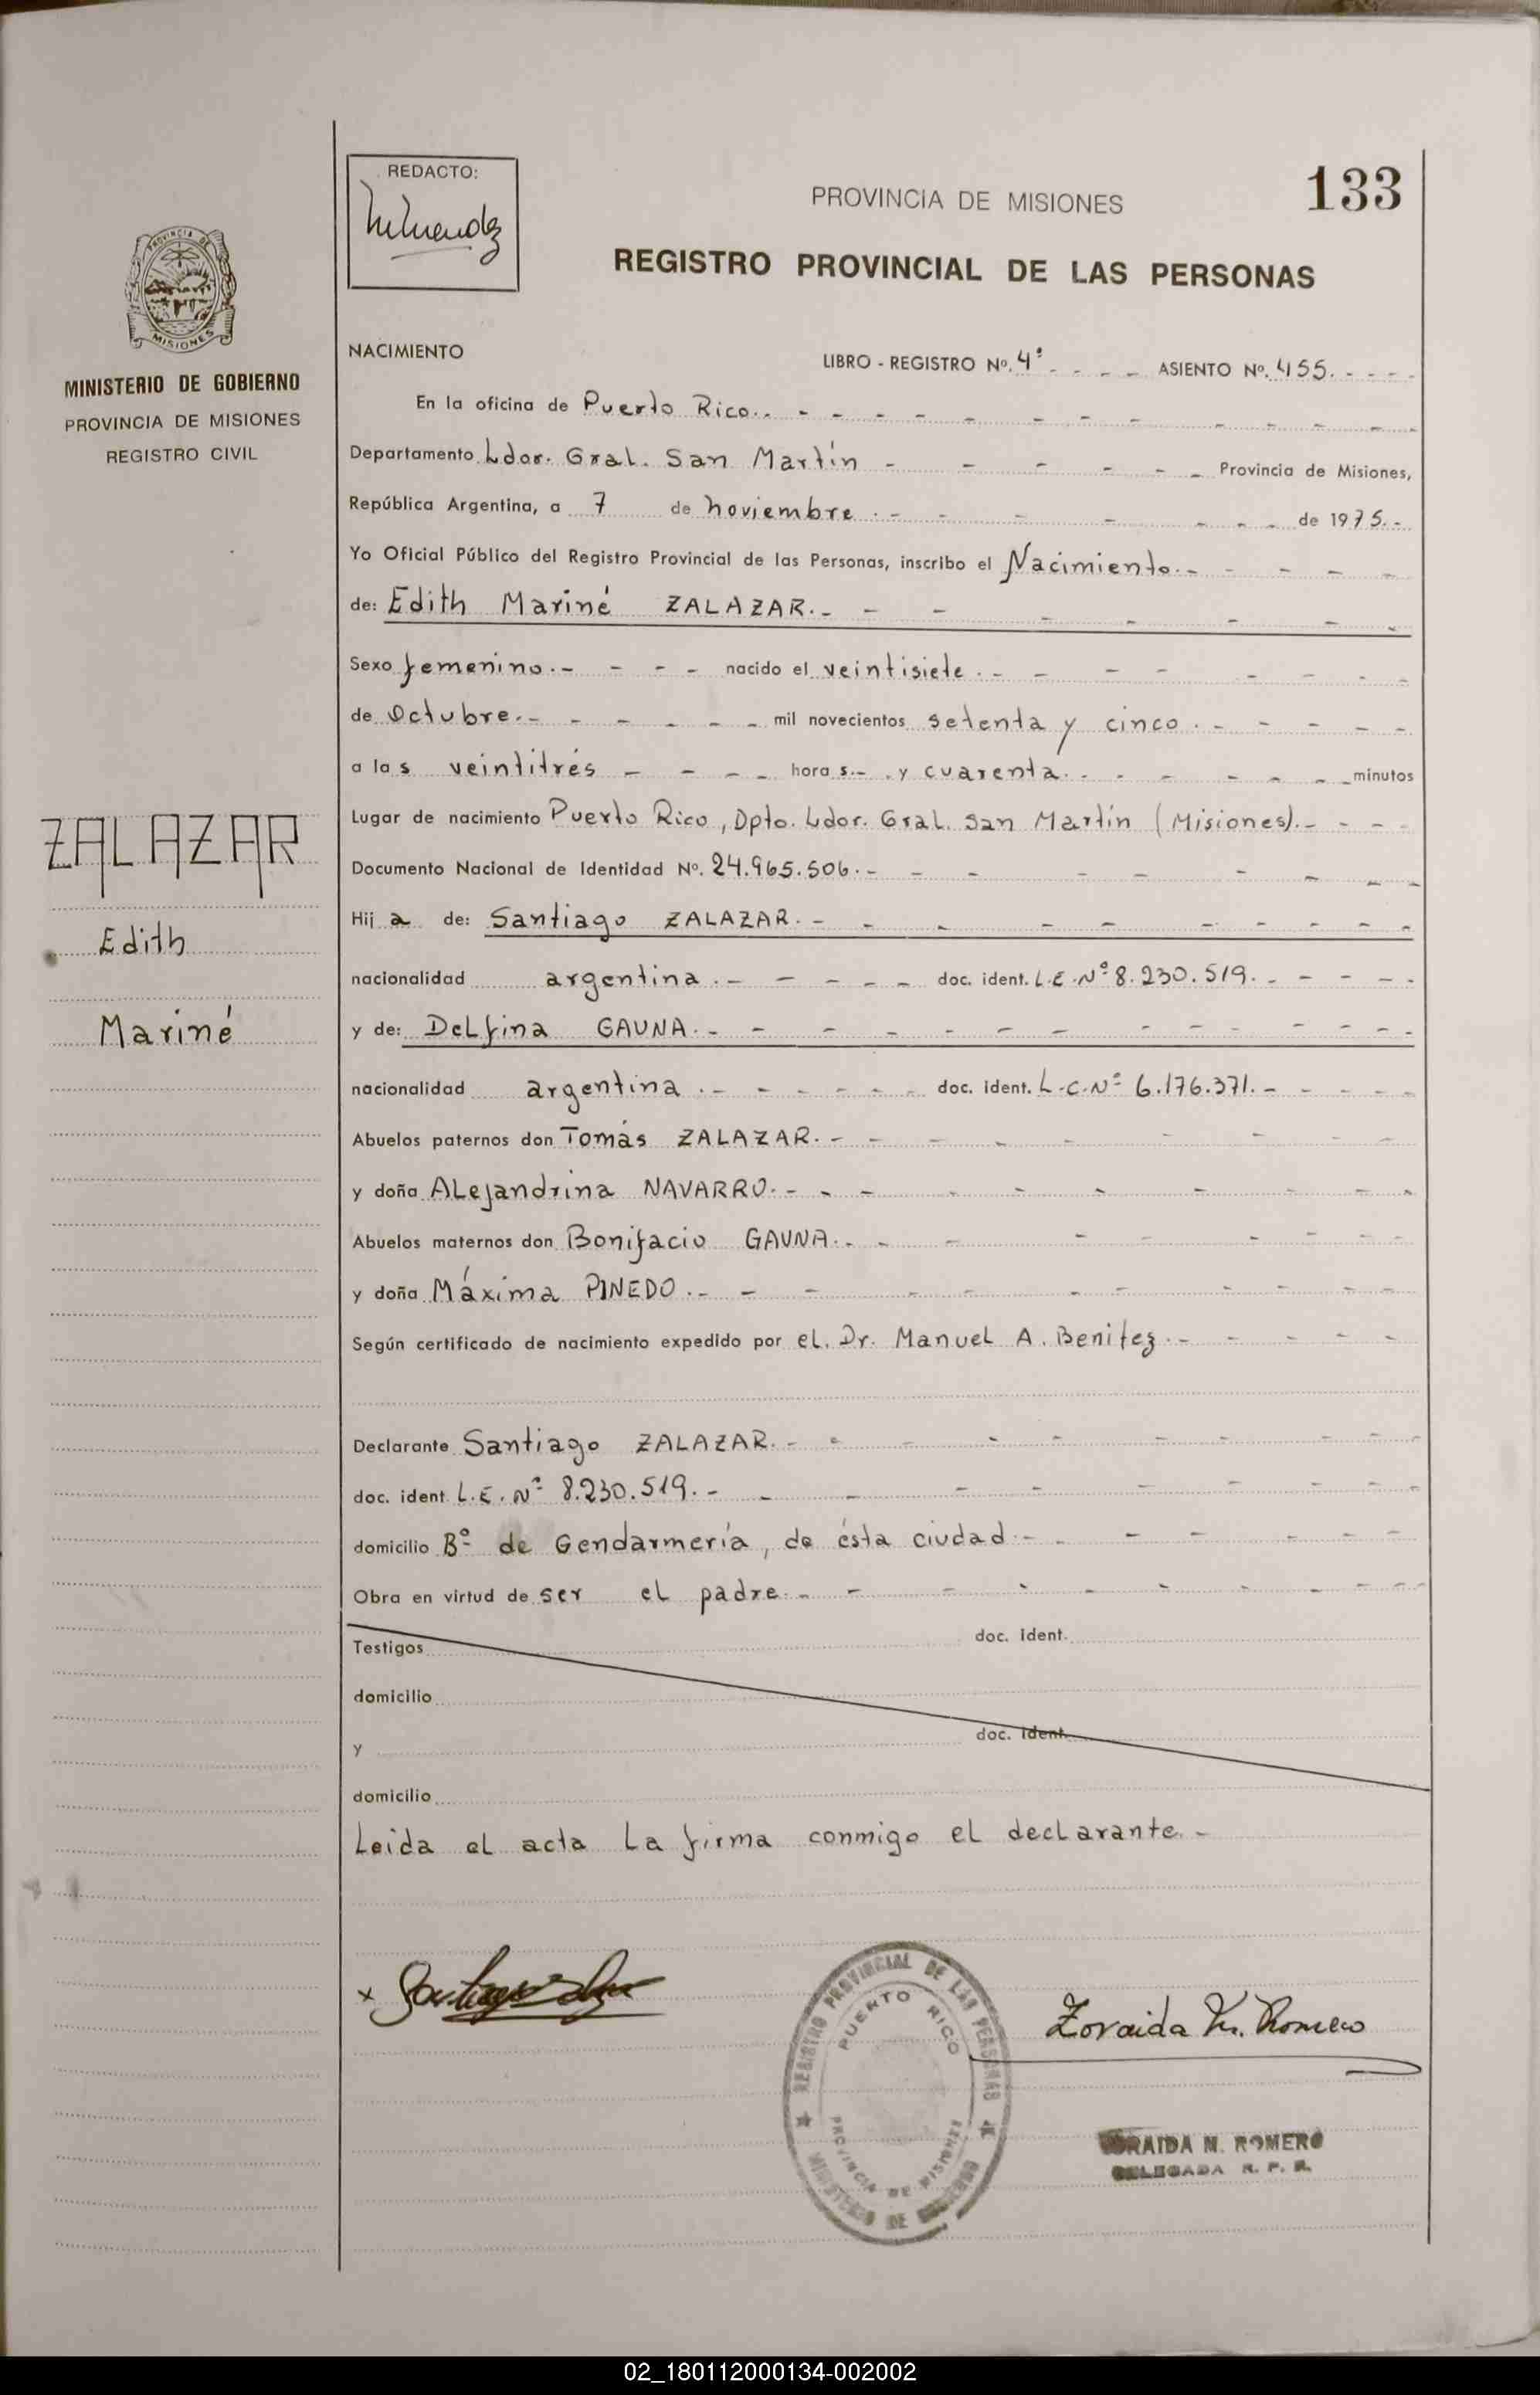 REDACTO:
PROVINCIA DE MISIONES
133
REGISTRO PROVINCIAL DE LAS PERSONAS
PROVINCIA DE
MISIONES
MINISTERIO DE GOBIERNO
PROVINCIA DE MISIONES
REGISTRO CIVIL
ZALAZAR
Edith
Mariné
NACIMIENTO
LIBRO - REGISTRO Nº. 4º - - - - ASIENTO Nº. 455. - - - -
En la oficina de Puerto Rico.. - - - - - - - - - - - -
Departamento Ldor. Gral. San Martín - - - - - - Provincia de Misiones,
República Argentina, a 7 de noviembre . - - - - - - - de 1975.-
Yo Oficial Público del Registro Provincial de las Personas, inscribo el Nacimiento.- - - - -
de: Edith Mariné ZALAZAR.- - - - - - - -
Sexo femenino.- - - - nacido el veintisiete . - - - - - - - -
de Octubre.- - - - - - mil novecientos setenta y cinco . - - - - -
a las veintitrés - - - - horas.- . y cuarenta. - - - - - - minutos
Lugar de nacimiento Puerto Rico, Dpto. Ldor. Gral. San Martín (Misiones).- - - -
Documento Nacional de Identidad Nº. 24.965.506.- - - - - - - - -
Hija de: Santiago ZALAZAR.- - - - - - - - - -
nacionalidad argentina.- - - - - doc. ident. L.E.Nº 8.230.519.- - - - -
y de: Delfina GAUNA.- - - - - - - - - - - - - - -
nacionalidad argentina.- - - - - - doc. ident. L.C.Nº 6.176.371.- - - - -
Abuelos paternos don Tomás ZALAZAR.- - - - - - - - -
y doña Alejandrina NAVARRO.- - - - - - - - - -
Abuelos maternos don Bonifacio GAUNA.- - - - - - - -
y doña Máxima PINEDO.- - - - - - - - - -
Según certificado de nacimiento expedido por el. Dr. Manuel A. Benitez.- - - - -
Declarante Santiago ZALAZAR.- - - - - - - - - -
doc. ident. L.E.Nº 8.230.519.- - - - - - - - -
domicilio Bº de Gendarmería, de ésta ciudad.- - - - - - -
Obra en virtud de ser el padre.- - - - - - - - - -
Testigos doc. ident.
domicilio
y doc. ident.
domicilio
Leida el acta la firma conmigo el declarante.-
x
REGISTRO PROVINCIAL DE LAS PERSONAS
PUERTO RICO
PROVINCIA DE MISIONES
MINISTERIO DE GOBIERNO
Zoraida M. Romero
ZORAIDA M. ROMERO
DELEGADA R. P. P.
02_180112000134-002002